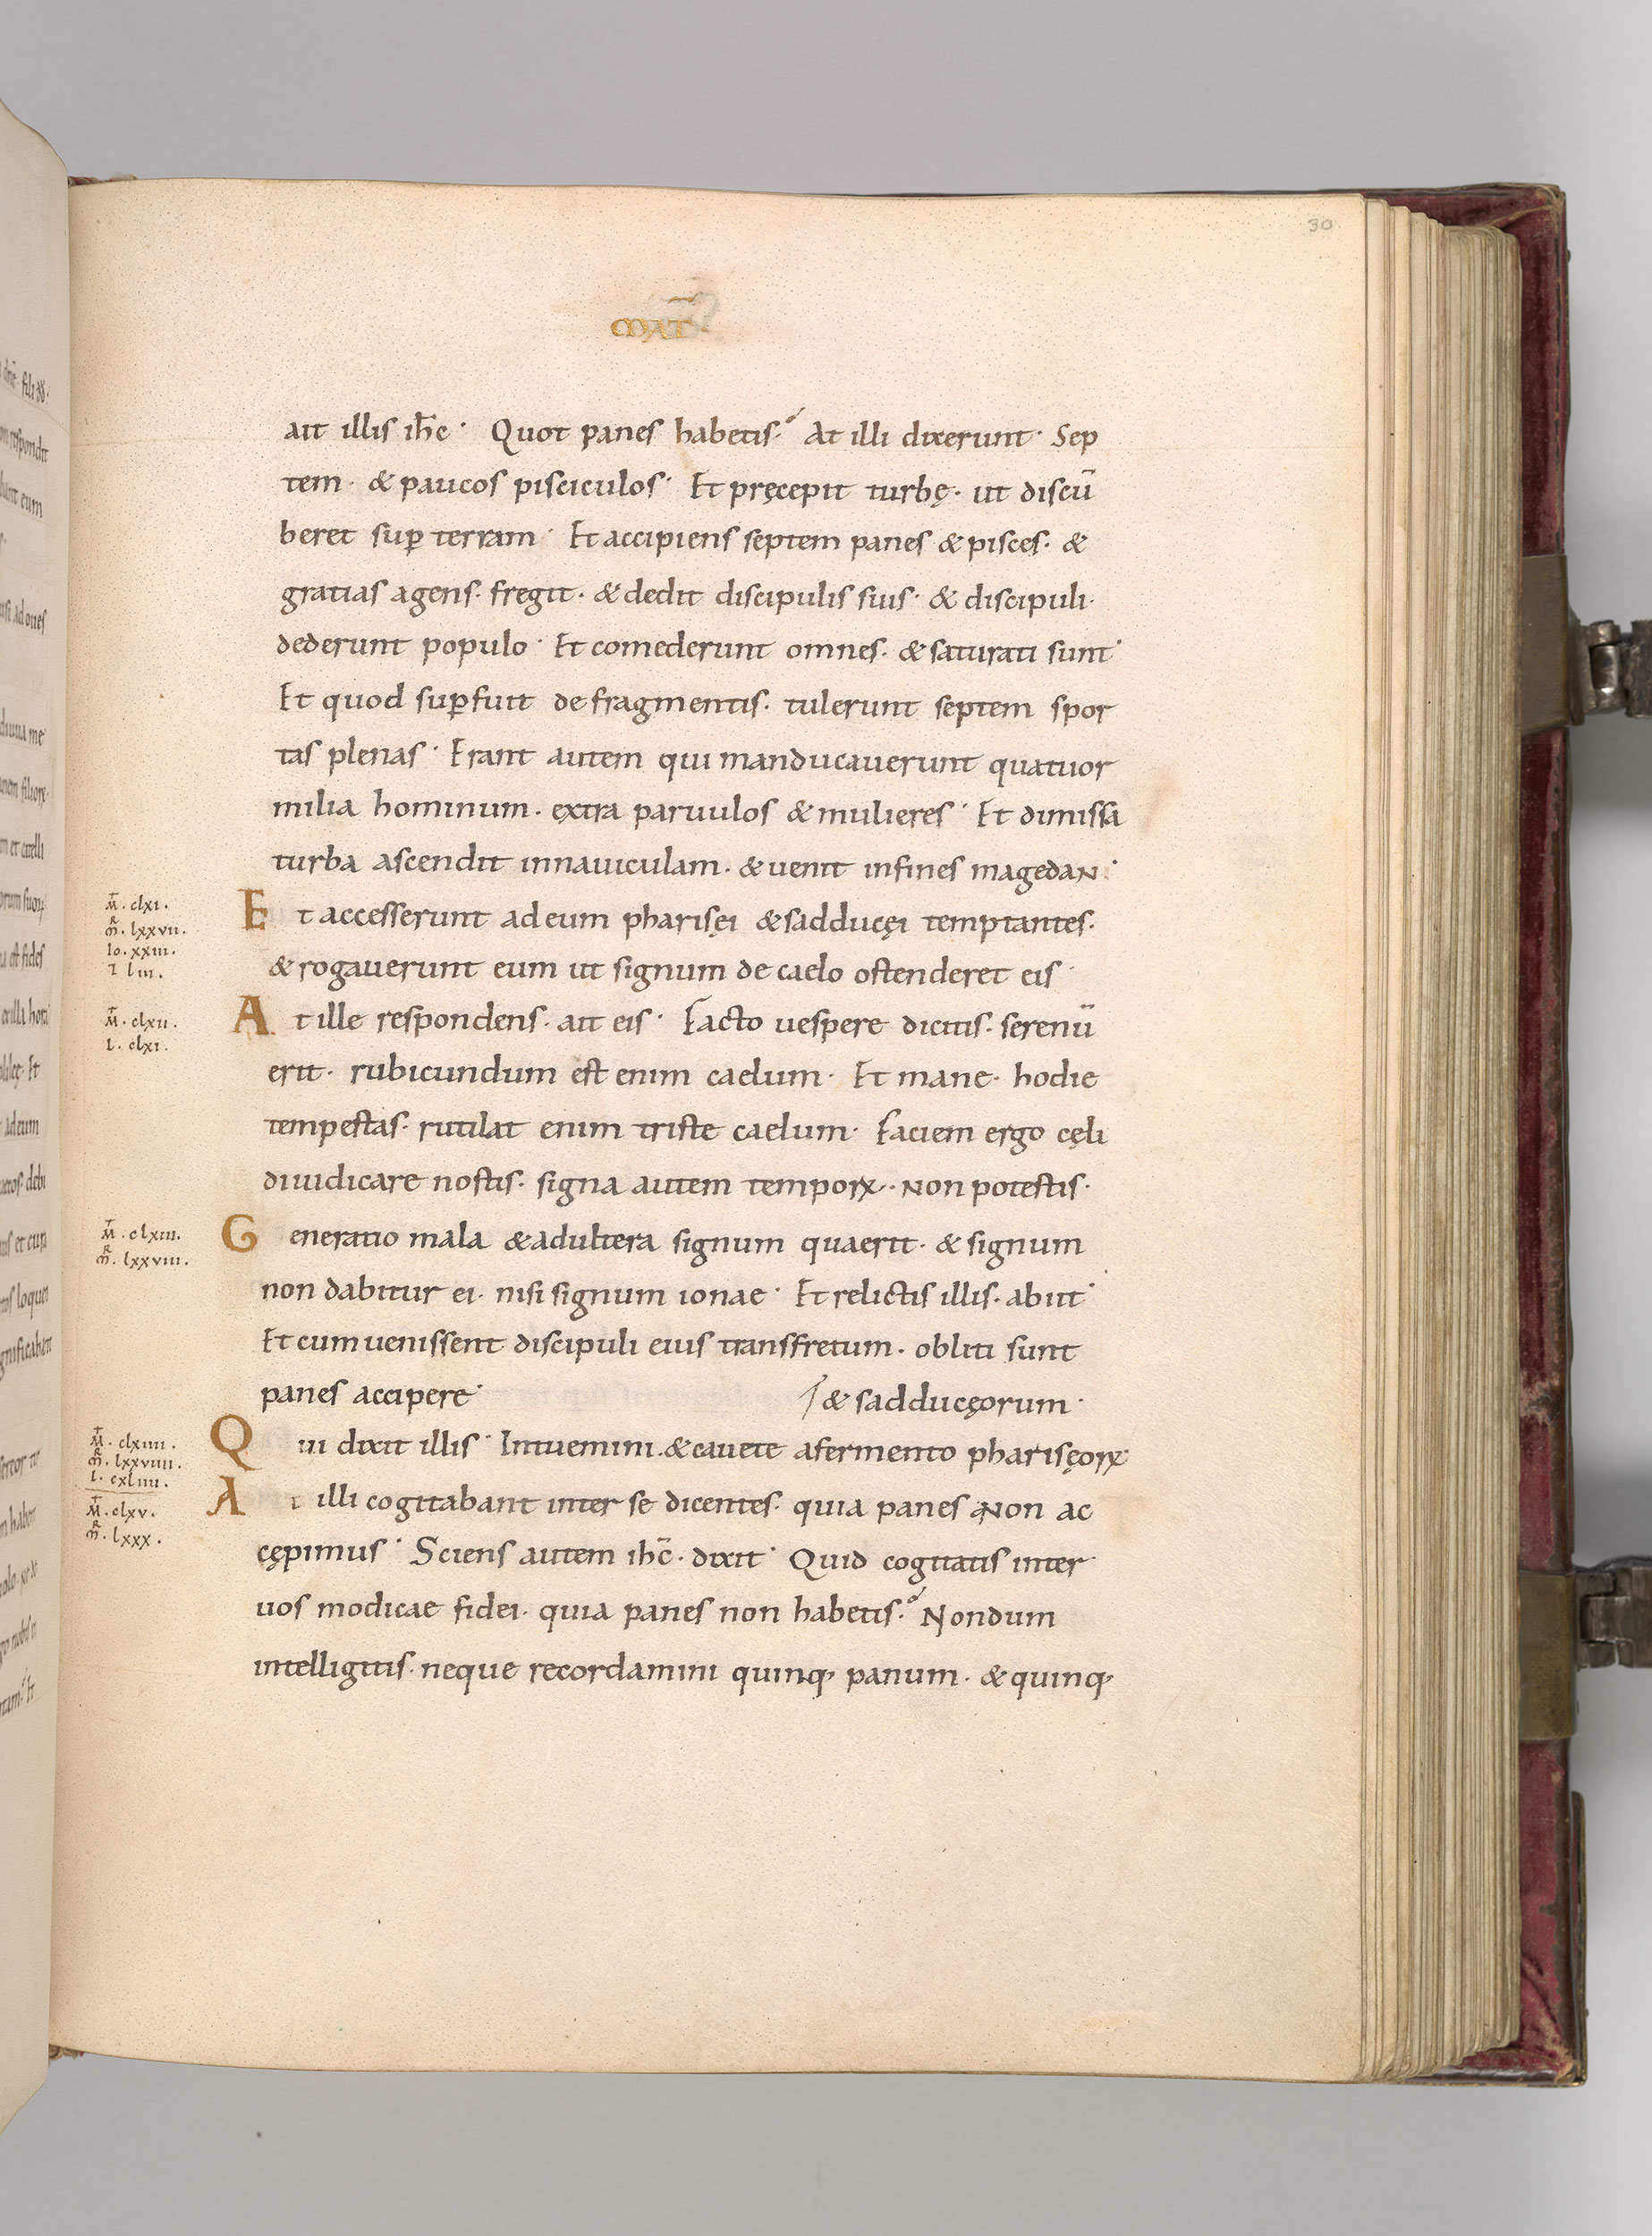 30
MAT̄
ait illis ih̄c· Quot panes habetis·? At illi dixerunt· Sep
tem· & paucos pisciculos· Et pręcepit turbę· ut discū
beret sup̱ terram· Et accipiens septem panes & pisces· &
gratias agens· fregit· & dedit discipulis suis· & discipuli·
dederunt populo· Et comederunt omnes· & saturati sunt·
Et quod sup̱fuit de fragmentis· tulerunt septem spor
tas plenas· Erant autem qui manducauerunt quatuor
milia hominum· extra paruulos & mulieres· Et dimissa
turba ascendit innauiculam· & uenit infines magedaN·
M̄· clxi·
m̄R· lxxvii·
Io· xxiii·
l liii·
Et accesserunt ad eum pharisęi & sadducęi temptantes·
& rogauerunt eum ut signum de caelo ostenderet eis·
M̄· clxii·
L· clxi·
At ille respondens· ait eis· Facto uespere dicitis· serenū
erit· rubicundum est enim caelum· Et mane· hodie
tempestas· rutilat enim triste caelum· Faciem ergo cęli
diiudicare nostis· signa autem temporꝝ· Non potestis·
M̄· clxiii·
m̄R· lxxviii·
Generatio mala & adultera signum quaerit· & signum
non dabitur ei· nisi signum ionae· Et relictis illis· abiit·
Et cum uenissent discipuli eius transfretum· obliti sunt
panes accipere· & sadducęorum·
M̄· clxiiii·
m̄R· lxxviiii·
L· cxliiii·
Qui dixit illis· Intuemini· & cauete afermento pharisęorꝝ·
M̄· clxv·
m̄R· lxxx·
At illi cogitabant inter se dicentes· quia panes Non ac
cępimus· Sciens autem ihc̄· dixit· Quid cogitatis inter·
uos modicae fidei· quia panes non habetis·? Nondum
intelligitis· neque recordamini quinq; panum· & quinq;